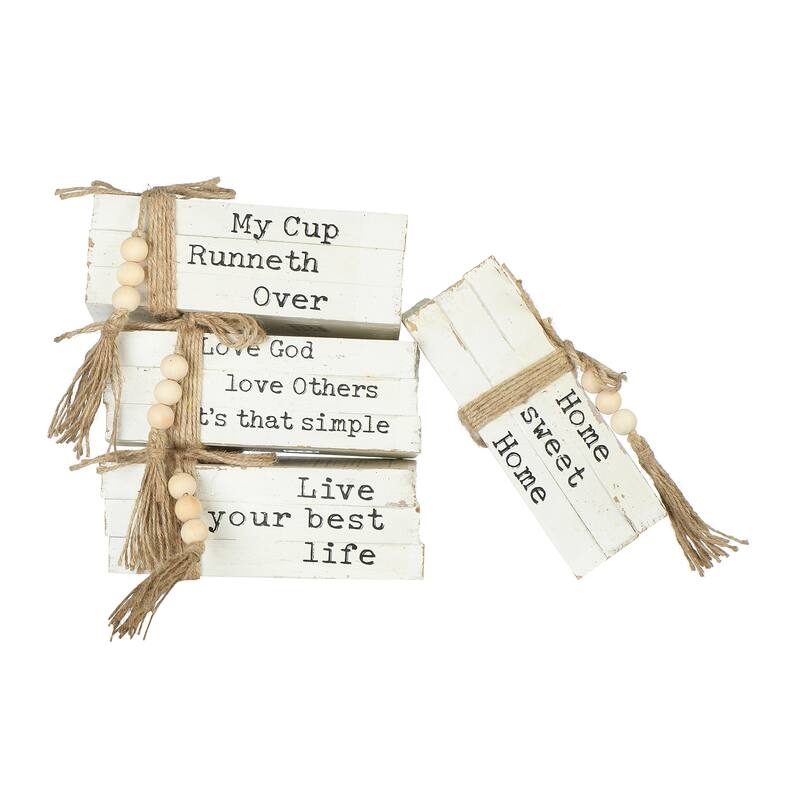 My Cup
Runneth
Over
Love God
love Others
t's that simple
Live
your best
life
Home
sweet
Home